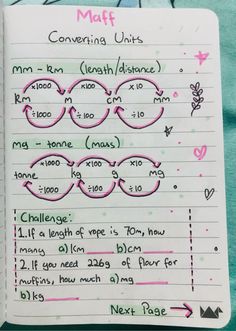 Maff
Converting Units
mm - km (length/distance)
×1000 ×100 ×10
km m cm mm
÷1000 ÷100 ÷10
mg - tonne (mass)
×1000 ×100 ×10
tonne kg g mg
÷1000 ÷100 ÷10
Challenge:
1. If a length of rope is 70m, how
many a)km b)cm
2. If you need 226g of flour for
muffins, how much a)mg
b)kg
Next Page →